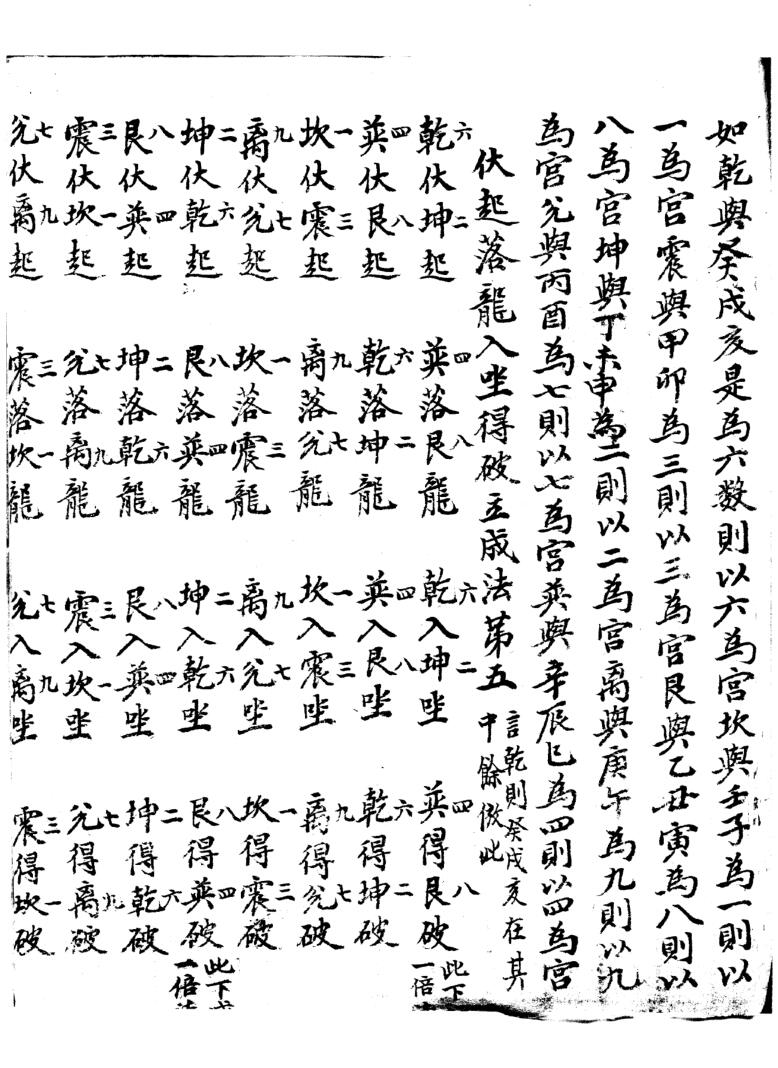 如乾與癸戌亥是為六数則以六為宮坎與壬子為一則以
一為宮震與甲卯為三則以三為宮艮與乙丑寅為八則以
八為宮坤與丁未申為二則以二為宮离與庚午為九則以九
為宮兊與丙酉為七則以七為宮巽與辛辰巳為四則以四為宮
伏起落龍入坐得破主成法第五 言乾則癸戌亥在其
中餘倣此
乾六伏坤二起 巽四落艮八龍 乾六入坤二坐 巽四得艮八破 此下
一倍
巽四伏艮八起 乾六落坤二龍 巽四入艮八坐 乾六得坤二破
坎一伏震三起 离九落兊七龍 坎一入震三坐 离九得兊七破
离九伏兊七起 坎一落震三龍 离九入兊七坐 坎一得震三破 此下
一倍
坤二伏乾六起 艮八落巽四龍 坤二入乾六坐 艮八得巽四破
艮八伏巽四起 坤二落乾六龍 艮八入巽四坐 坤二得乾六破
震三伏坎一起 兊七落离九龍 震三入坎一坐 兊七得离九破
兊七伏离九起 震三落坎一龍 兊七入离九坐 震三得坎一破